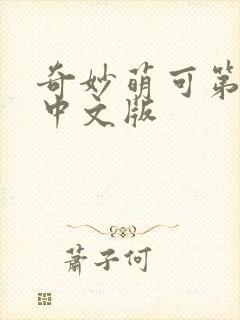 奇妙萌可第
中文版
萧子何